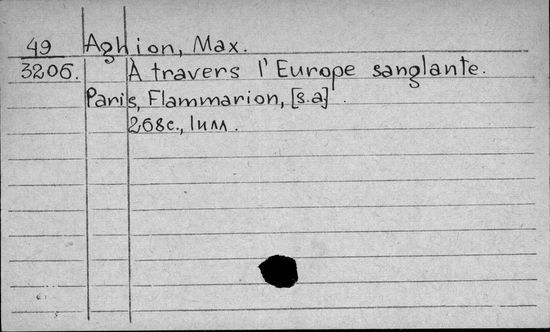 49 Aghion, Max.
3206. A travers l'Europe sanglante.
Paris, Flammarion, [s.a].
268с., 1илл.